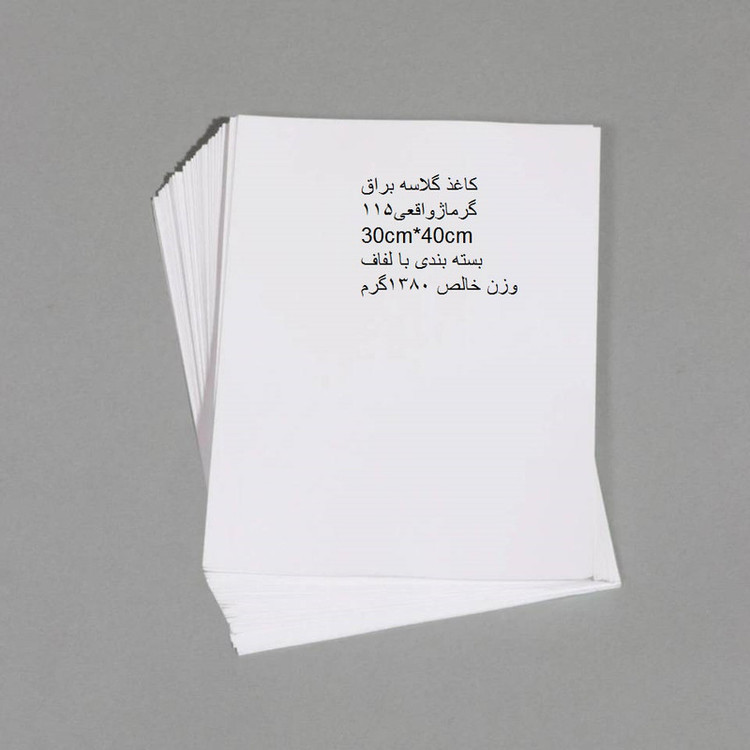 کاغذ گلاسه براق
گرماژواقعی۱۱۵
30cm*40cm
بسته بندی با لفاف
وزن خالص ۱۳۸۰گرم